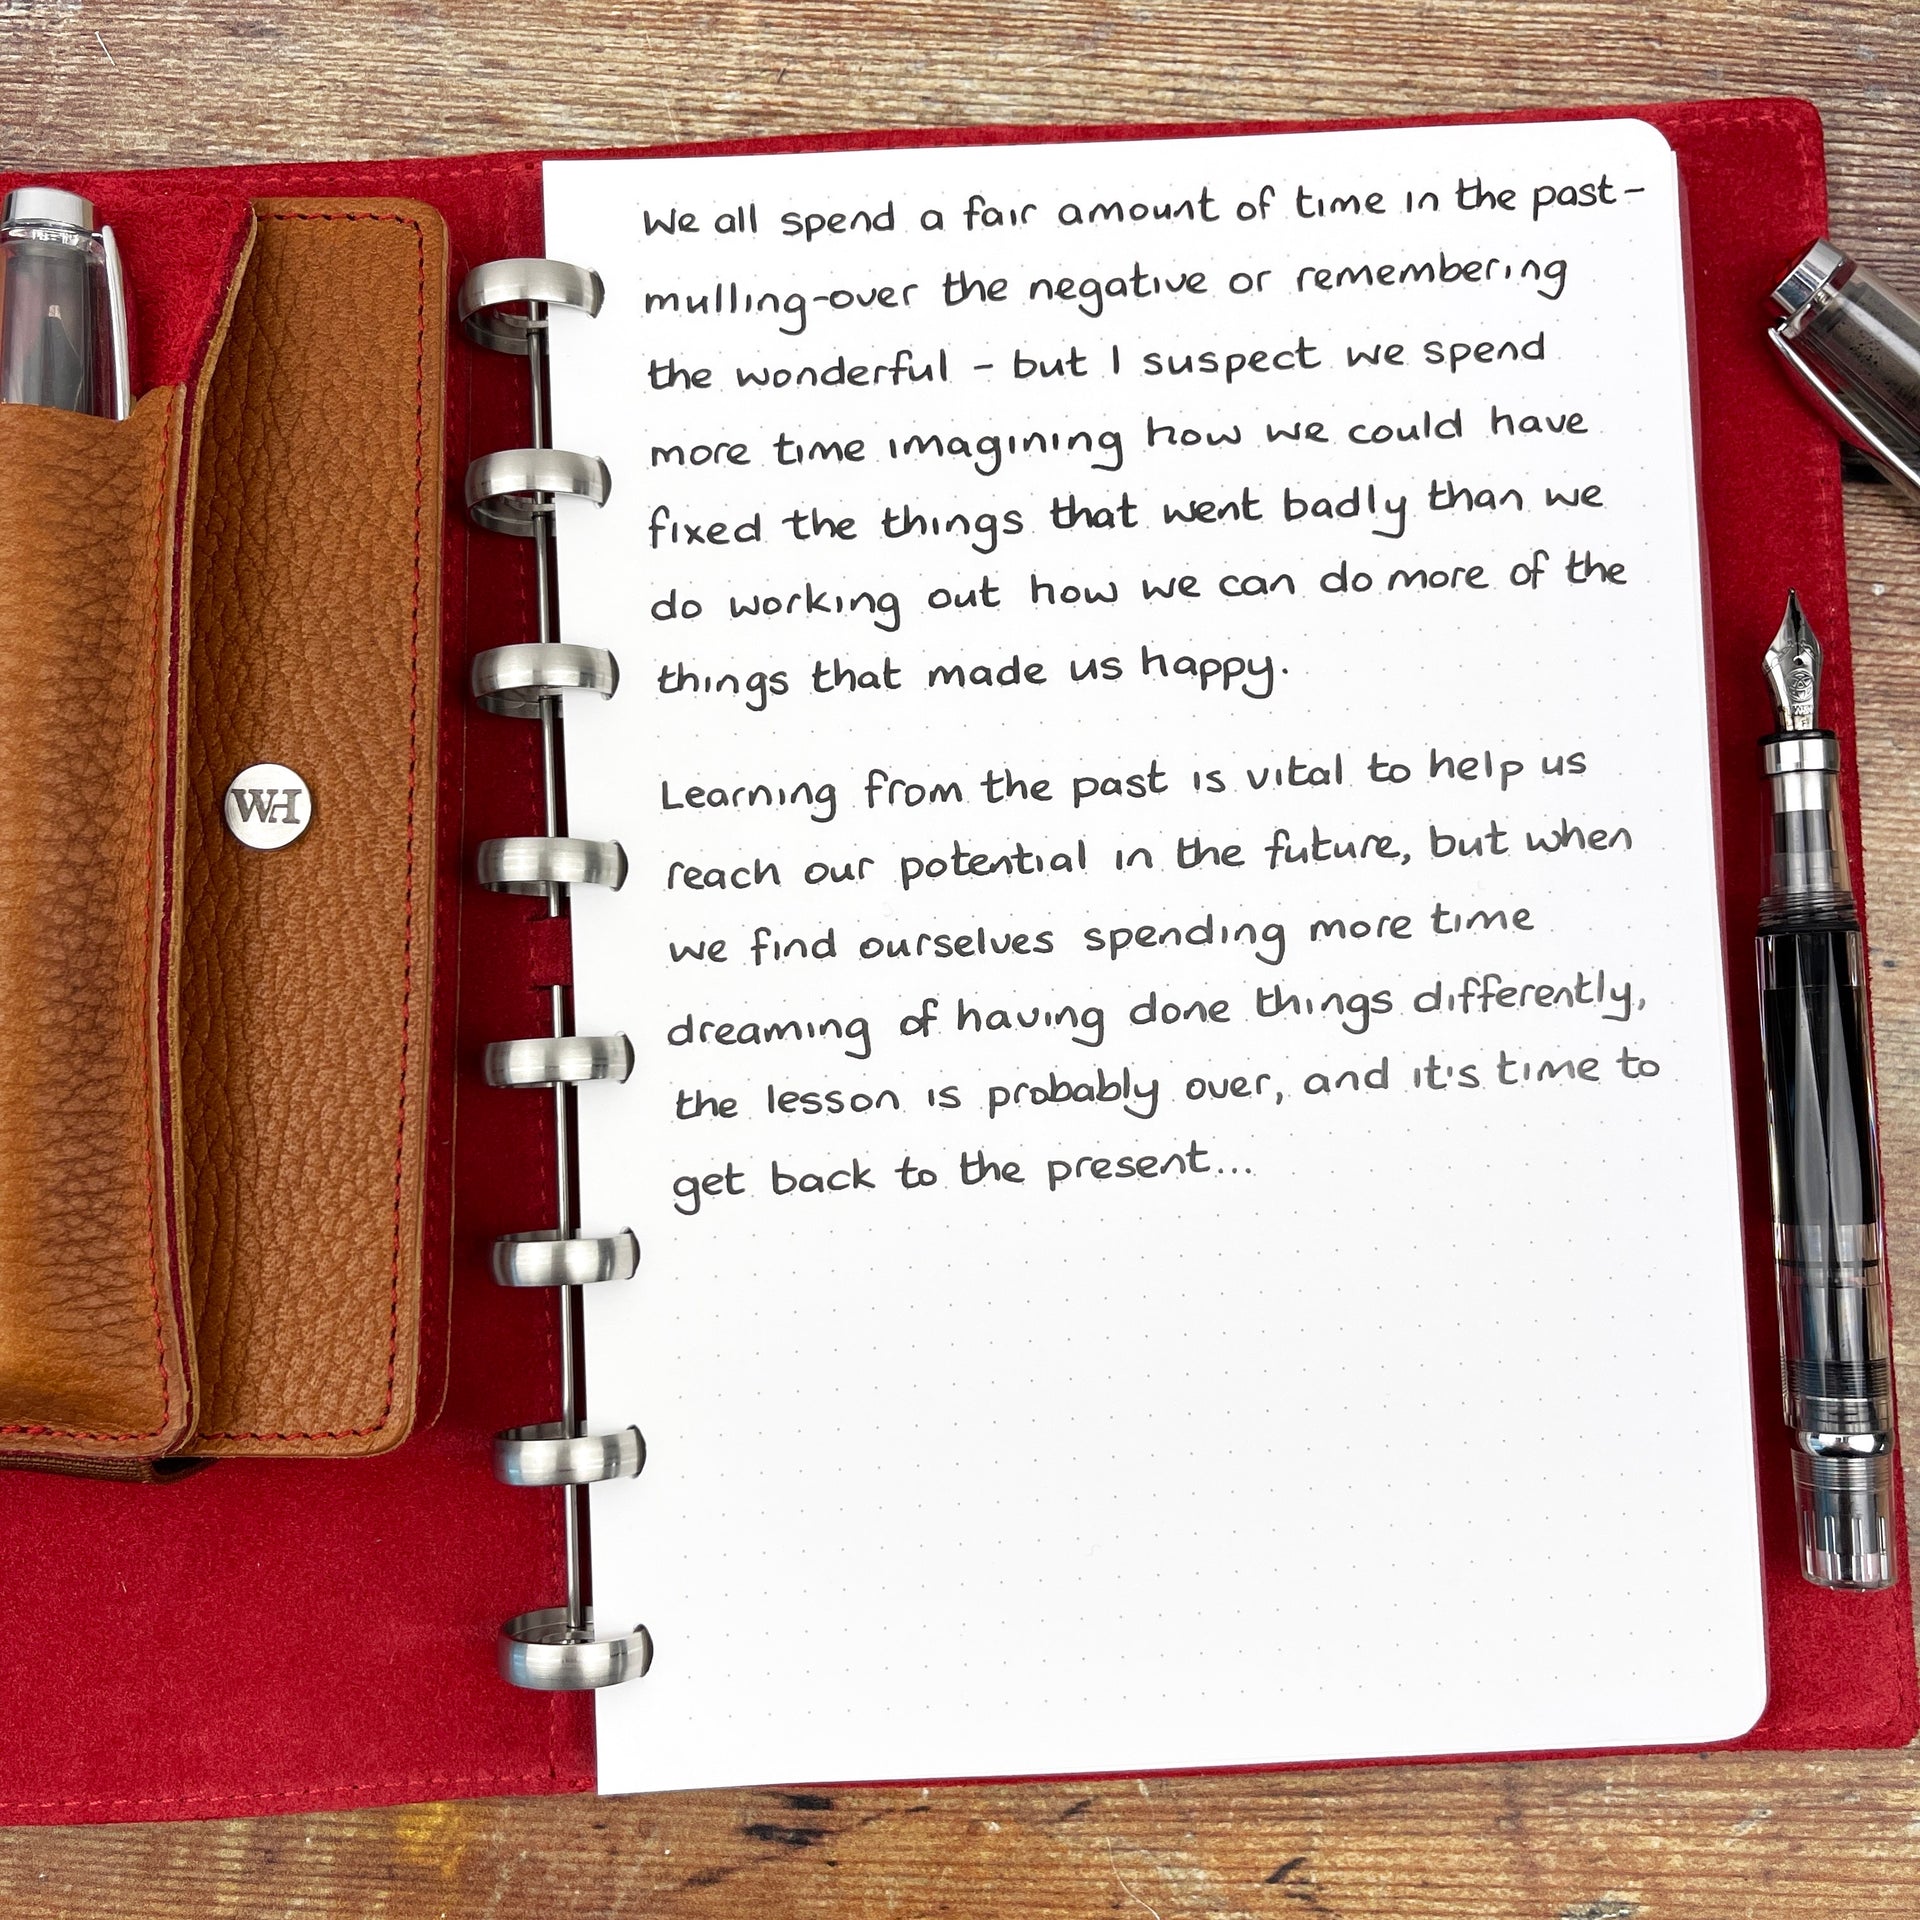 We all spend a fair amount of time in the past -
mulling-over the negative or remembering
the wonderful - but I suspect we spend
more time imagining how we could have
fixed the things that went badly than we
do working out how we can do more of the
things that made us happy.
Learning from the past is vital to help us
reach our potential in the future, but when
we find ourselves spending more time
dreaming of having done things differently,
the lesson is probably over, and it's time to
get back to the present...
WH